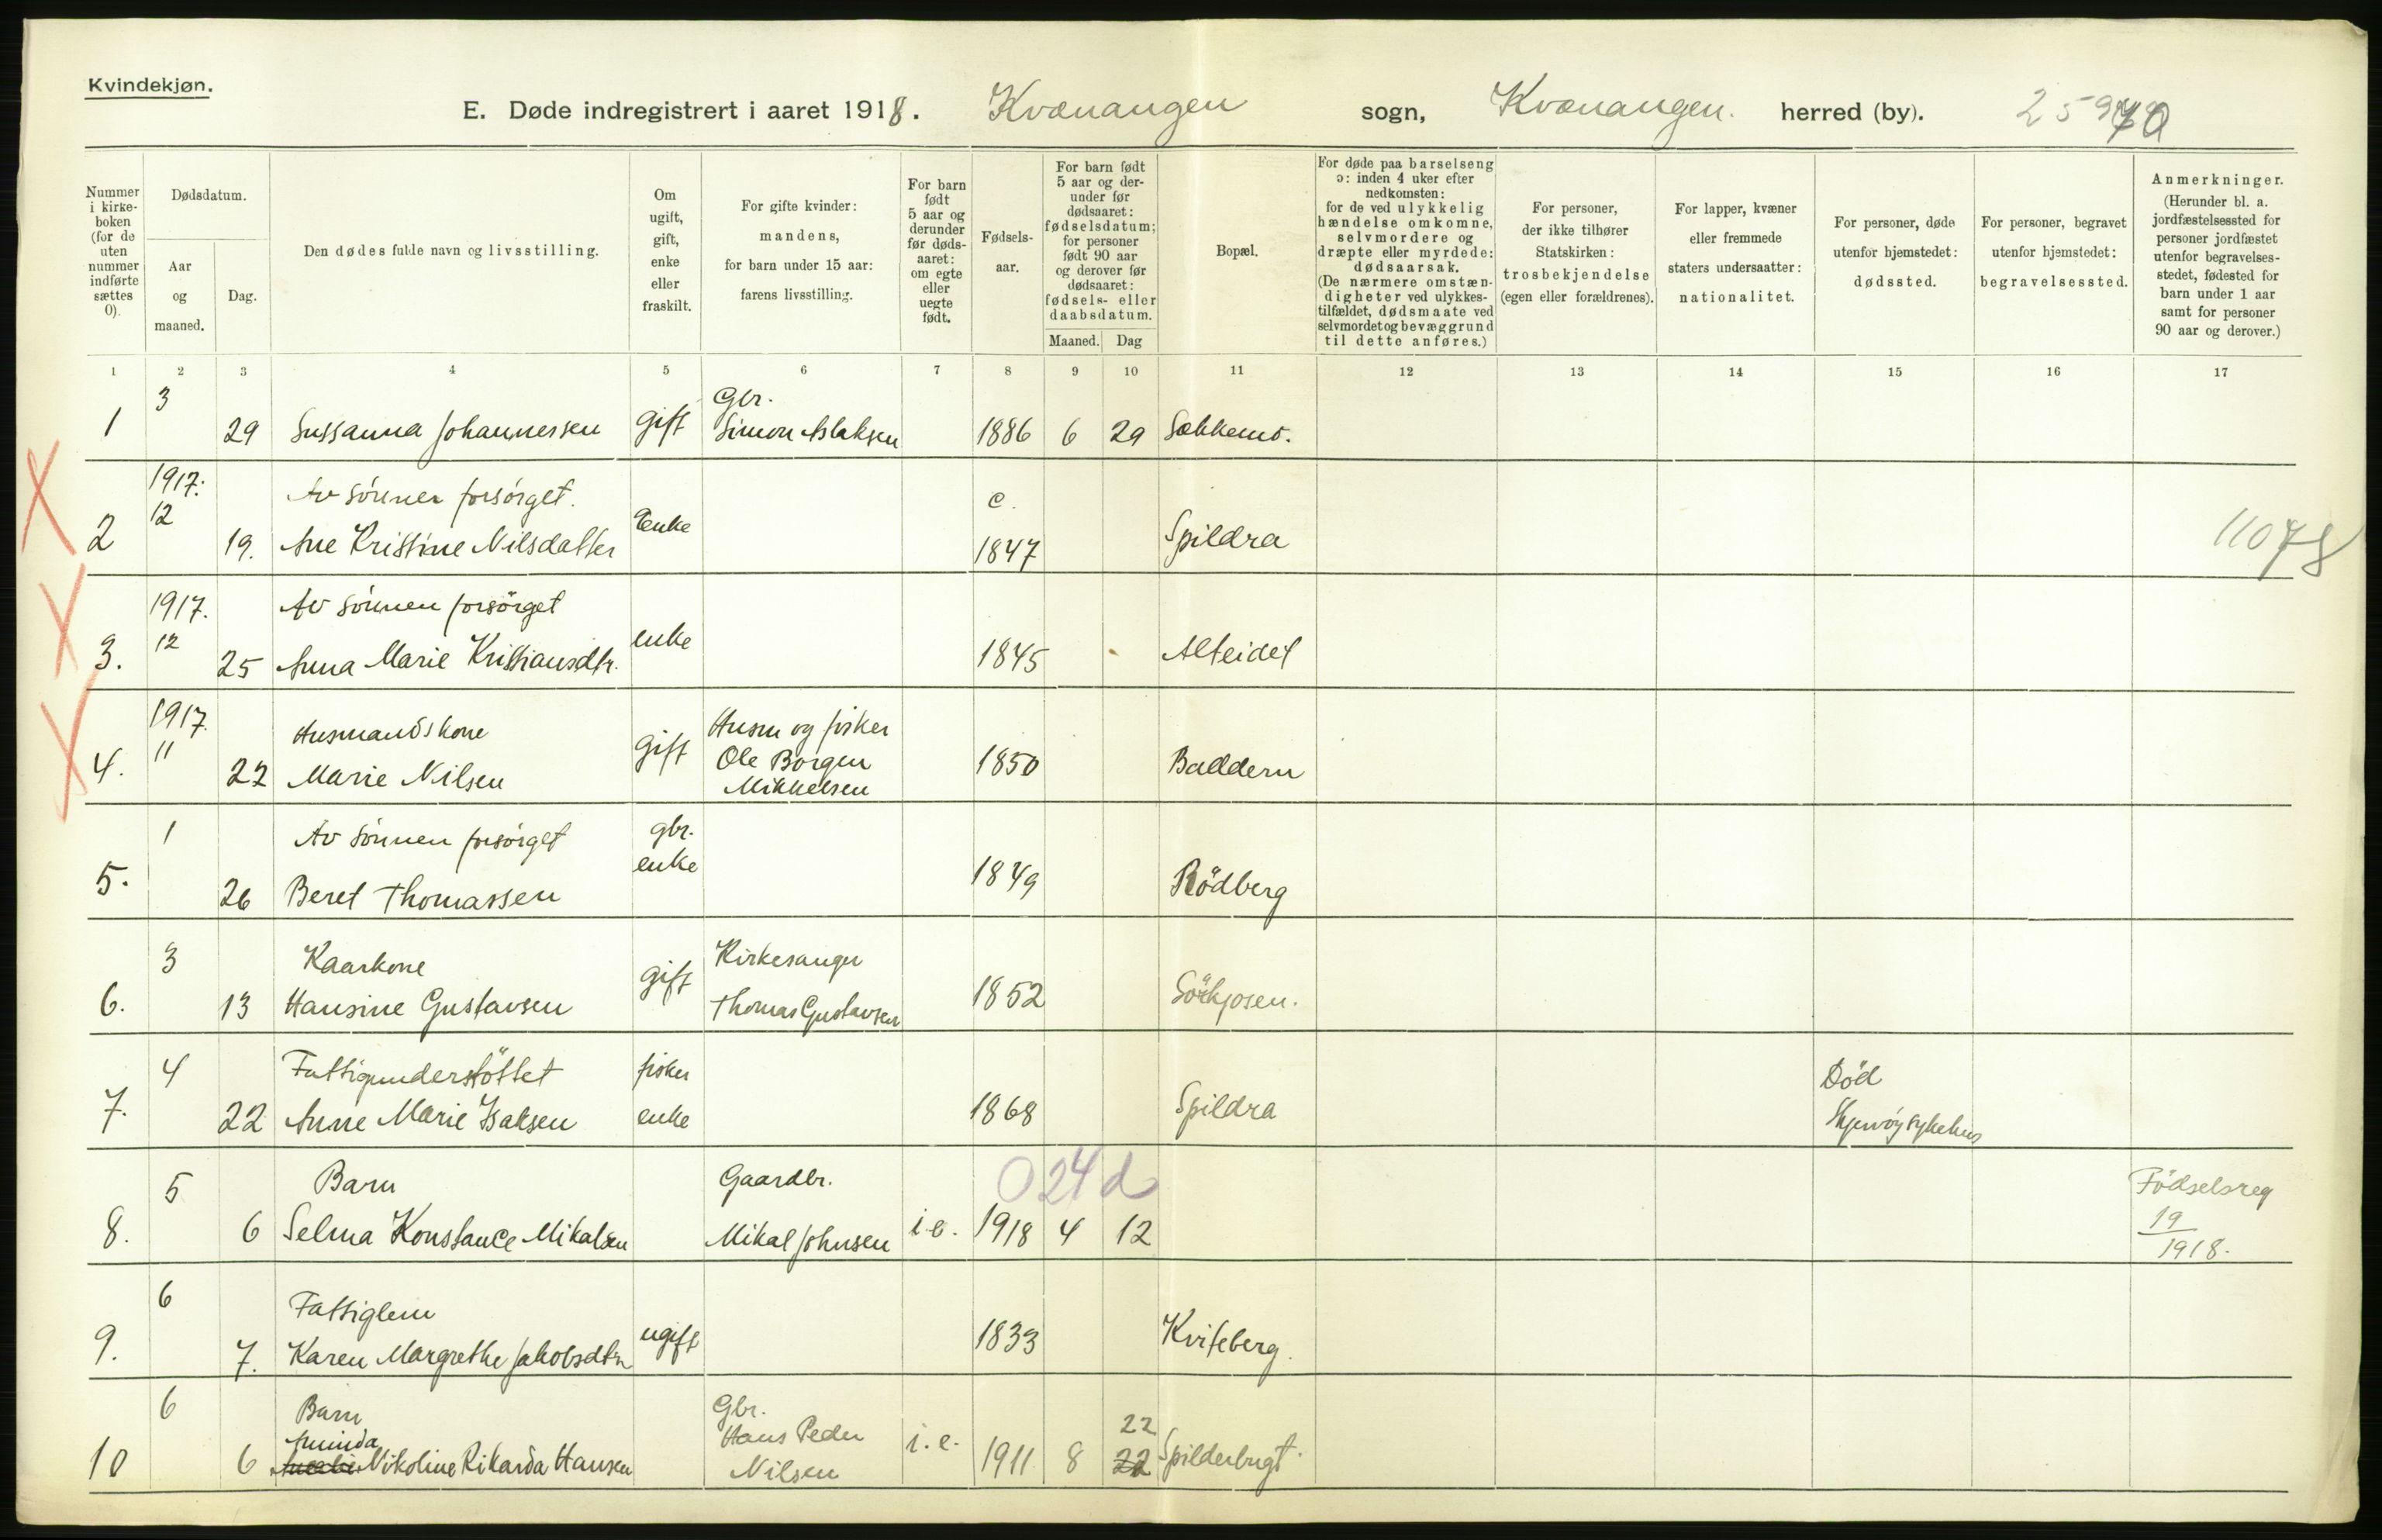 Kvindekjøn.
E. Døde indregistrert i aaret 1918. Kvænangen sogn, Kvænangen. herred (by).
Nummer i kirkeboken (for de uten nummer indførte sættes 0).
Dødsdatum.
Aar og maaned.
Dag.
Den dødes fulde navn og livsstilling.
Om ugift, gift, enke eller fraskilt.
For gifte kvinder: mandens, for barn under 15 aar: farens livsstilling.
For barn født 5 aar og derunder før dødsaaret: om egte eller uegte født.
Fødselsaar.
For barn født 5 aar og derunder før dødsaaret: fødselsdatum; for personer født 90 aar og derover før dødsaaret: fødsels- eller daabsdatum.
Maaned. Dag
Bopæl.
For døde paa barselseng ɔ: inden 4 uker efter nedkomsten: for de ved ulykkelig hændelse omkomne, selvmordere og dræpte eller myrdede: dødsaarsak. (De nærmere omstændigheter ved ulykkestilfældet, dødsmaate ved selvmordet og bevæggrund til dette anføres.)
For personer, der ikke tilhører Statskirken: trosbekjendelse (egen eller forældrenes).
For lapper, kvæner eller fremmede staters undersaatter: nationalitet.
For personer, døde utenfor hjemstedet: dødssted.
For personer, begravet utenfor hjemstedet: begravelsessted.
Anmerkninger. (Herunder bl. a. jordfæstelsessted for personer jordfæstet utenfor begravelsesstedet, fødested for barn under 1 aar samt for personer 90 aar og derover.)
1 2 3 4 5 6 7 8 9 10 11 12 13 14 15 16 17
3 Gbr.
1 29 Sussanna Johannessen gift Simon Aslaksen 1886 6 29 Sekkemo.
1917. Av sönnen forsörget. c.
12
2 19. Ane Kristine Nilsdatter Enke 1847 Spildra
11078
1917. Av sönnen forsörget
12
3. 25 Anna Marie Kristiansdtr. enke 1845 Alteidet
1917. Husmandskone Husm og fisker
11 gift Ole Borgen
4. 22 Marie Nilsen Mikkelsen 1850 Baddern
1 Av sönnen forsörget gbr.
5. 26 Beret Thomassen enke 1849 Rödberg
3 Kaarkone Kirkesanger
6. 13 Hansine Gustavsen gift Thomas Gustavsen 1852 Sörkjosen.
4 Fattigunderstöttet fisker Död
7. 22 Anne Marie Isaksen enke 1868 Spildra Skjervöy sykehus
5 Barn Gaardbr. 0 24 d Födselsreg
8. 6 Selma Konstance Mikalsen Mikal Johnsen i.e. 1918 4 12 19
1918.
6 Fattiglem
9. 7. Karen Margrethe Jakobsdtr ugift 1833 Kviteberg.
6 Barn Gbr. 22
Aminda Hans Peder
10 6 Nikoline Rikarda Hansen Nilsen i.e. 1911 8 22 Spilderbugt.